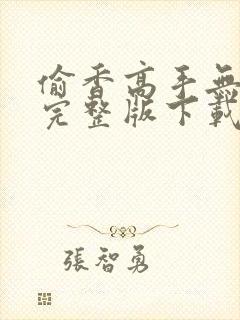 偷香高手無
完整版下載
張智勇